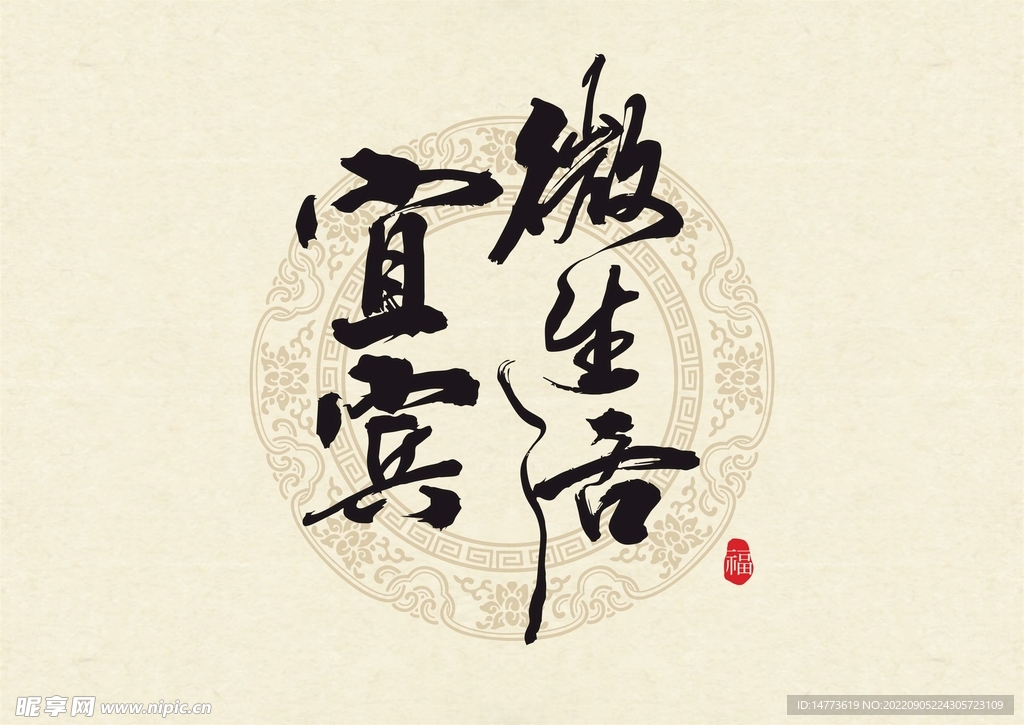 微生活
宜宾
福
昵享网 www.nipic.cn
ID:14773619 NO:20220905224305723109